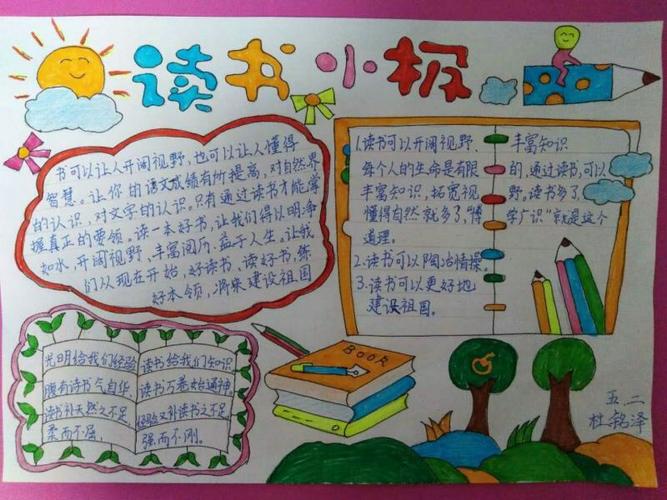 读书小报
书可以让人开阔视野,也可以让人懂得
智慧。让你的语文成绩有所提高,对自然界
的认识,对文字的认识。只有通过读书才能掌
握真正的要领。读一本好书,让我们得以明净
如水,开阔视野,丰富阅历,益于人生。让我
们从现在开始,好读书、读好书,练
好本领,将来建设祖国
1.读书可以开阔视野,丰富知识
每个人的生命是有限的,通过读书,可以
丰富知识,拓宽视野。读书多了,
懂得自然就多了,"博学广识"就是这个
道理。
2.读书可以陶冶情操。
3.读书可以更好地
建设祖国。
光明给我们经验
腹有诗书气自华
读书补天然之不足
柔而不屈,
读书给我们知识
读书万卷始通神。
经验又补读书之不足
强而不刚。
BOOK
五.二
杜铭泽